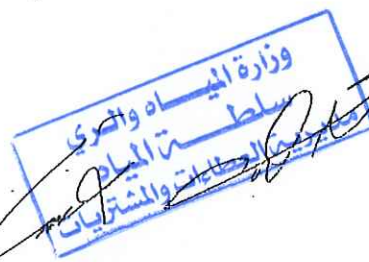 وزارة الميـــاه والري
سلطـــة المياه
مديرية العطاءات والمشتريات